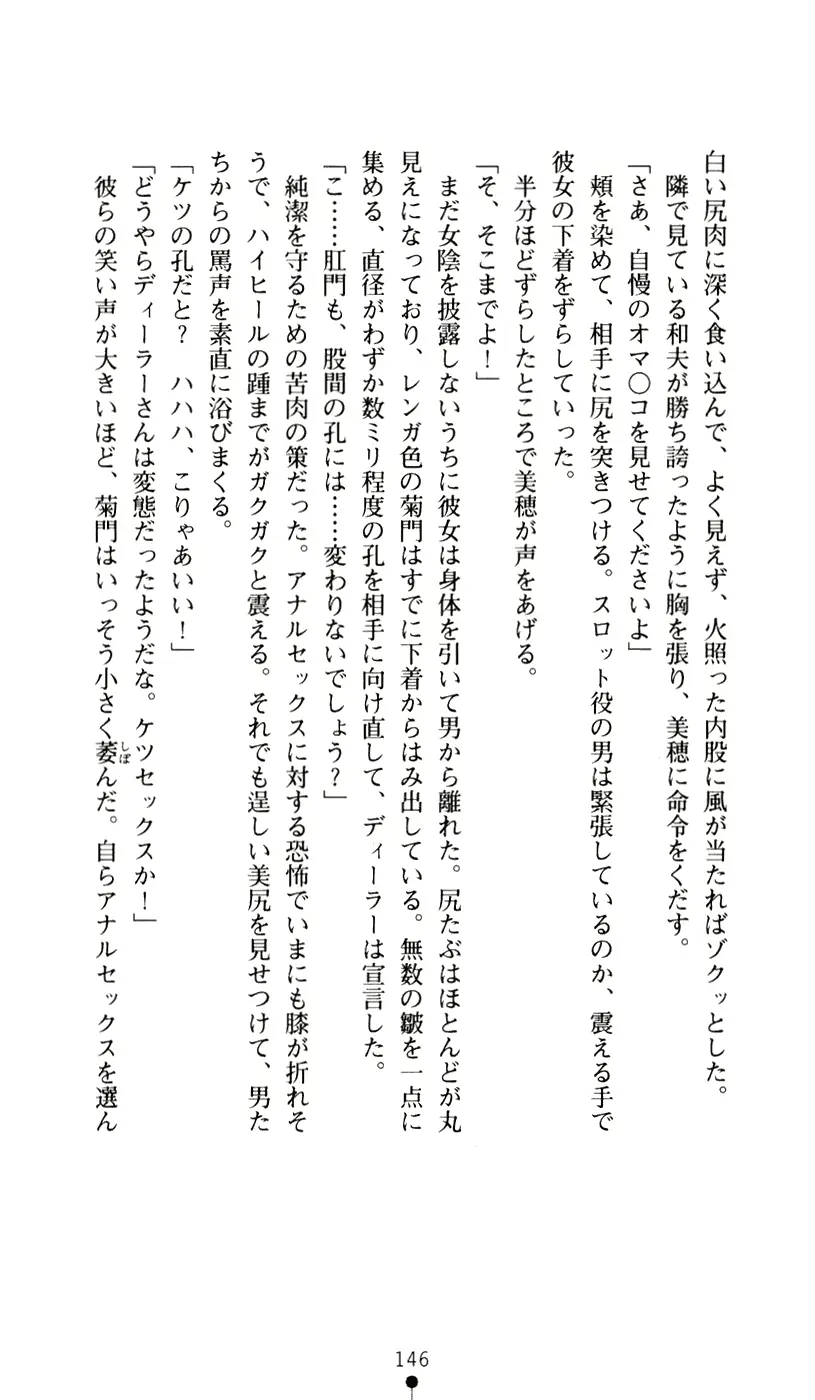 白い尻肉に深く食い込んで、よく見えず、火照った内股に風が当たればゾクッとした。
隣で見ている和夫が勝ち誇ったように胸を張り、美穂に命令をくだす。
「さあ、自慢のオマ〇コを見せてくださいよ」
頬を染めて、相手に尻を突きつける。スロット役の男は緊張しているのか、震える手で
彼女の下着をずらしていった。
半分ほどずらしたところで美穂が声をあげる。
「そ、そこまでよ！」
まだ女陰を披露しないうちに彼女は身体を引いて男から離れた。尻たぶはほとんどが丸
見えになっており、レンガ色の菊門はすでに下着からはみ出している。無数の皺を一点に
集める、直径がわずか数ミリ程度の孔を相手に向け直して、ディーラーは宣言した。
「こ……肛門も、股間の孔には……変わりないでしょう？」
純潔を守るための苦肉の策だった。アナルセックスに対する恐怖でいまにも膝が折れそ
うで、ハイヒールの踵までがガクガクと震える。それでも逞しい美尻を見せつけて、男た
ちからの罵声を素直に浴びまくる。
「ケツの孔だと？　ハハハ、こりゃあいい！」
「どうやらディーラーさんは変態だったようだな。ケツセックスか！」
彼らの笑い声が大きいほど、菊門はいっそう小さく萎んだ。自らアナルセックスを選ん
しぼ
146